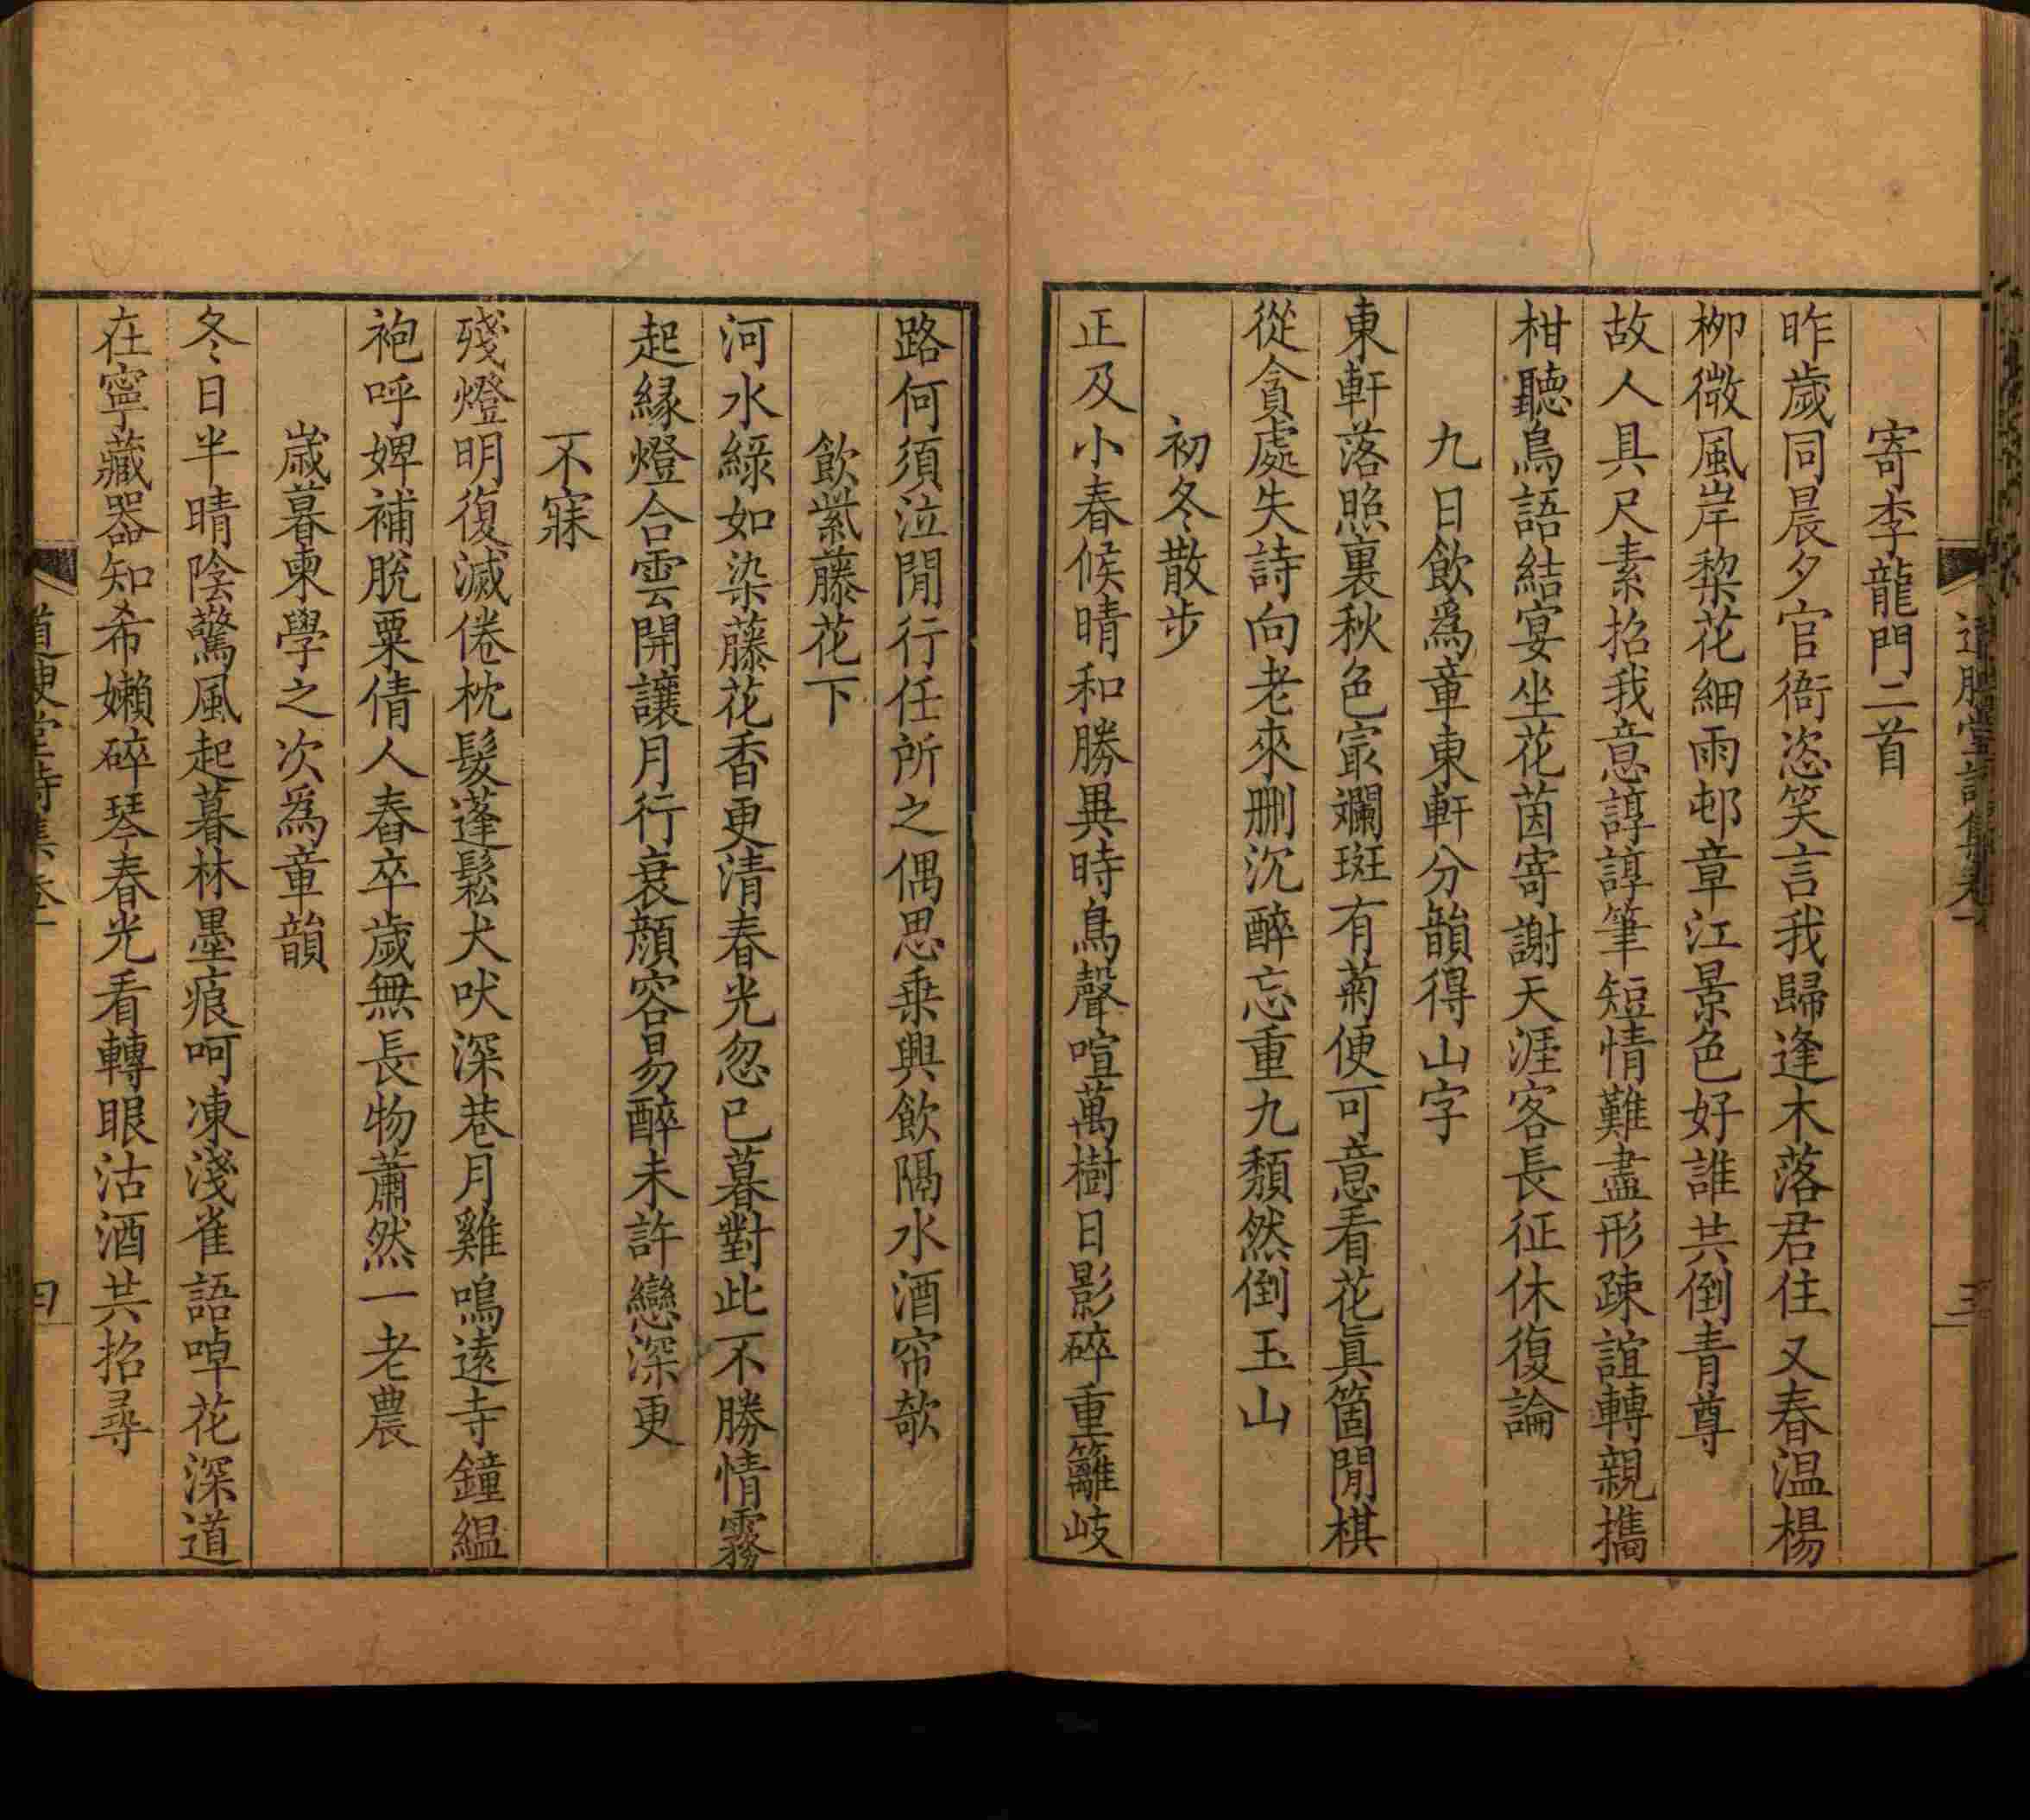 寄李龍門二首
昨歲同晨夕官衙恣笑言我歸逢木落君住又春温楊
柳微風岸棃花細雨邨章江景色好誰共倒青尊
故人具尺素招我意諄諄筆短情難盡形疎誼轉親攜
柑聽鳥語結宴坐花茵寄謝天涯客長征休復論
九日飲爲章東軒分韻得山字
東軒落照裏秋色㝡斕斑有菊便可意看花眞箇閒棋
從貪處失詩向老來刪沉醉忘重九頽然倒玉山
初冬散步
正及小春候晴和勝異時鳥聲喧萬樹日影碎重籬岐
路何須泣閒行任所之偶思乗興飲隔水酒帘欹
飲紫藤花下
河水綠如染藤花香更清春光忽已暮對此不勝情霧
起緣燈合雲開讓月行衰顔容易醉未許戀深更
不寐
殘燈明復滅倦枕髮蓬鬆犬吠深巷月雞鳴遠寺鐘緼
袍呼婢補脫粟倩人舂卒歲無長物蕭然一老農
歲暮柬學之次爲章韻
冬日半晴陰驚風起暮林墨痕呵凍淺雀語啅花深道
在寧藏器知希嬾碎琴春光看轉眼沽酒共招尋
堂詩集卷一
三
四